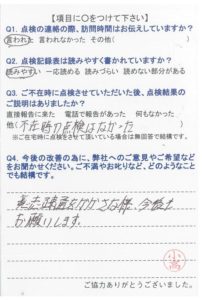 【項目に○をつけて下さい】
Q1. 点検の連絡の際、訪問時間はお伝えしていますか？
言われた 言われなかった その他（ ）
Q2. 点検記録表は読みやすく書かれていますか？
読みやすい 一応読める 読みづらい 読めない部分がある
Q3. ご不在時に点検させていただいた後、点検結果の
ご説明はありましたか？
直接報告に来た 電話で報告があった 何もなかった
他（不在時の点検はなかった ）
※ご在宅時に点検をさせて頂いている場合は無回答で結構です。
Q4. 今後の改善の為に、弊社へのご意見やご希望など
をお聞かせください。ご不満やお叱りなど、どのようなこと
でも結構です。
お願いします。
ご協力ありがとうございました。